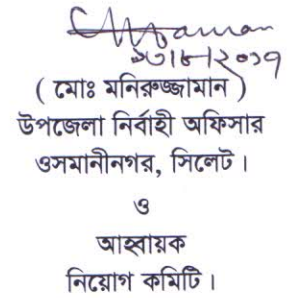 ২৩/৮/২০১৭
( মোঃ মনিরুজ্জামান )
উপজেলা নির্বাহী অফিসার
ওসমানীনগর, সিলেট ।
ও
আহবায়ক
নিয়োগ কমিটি ।